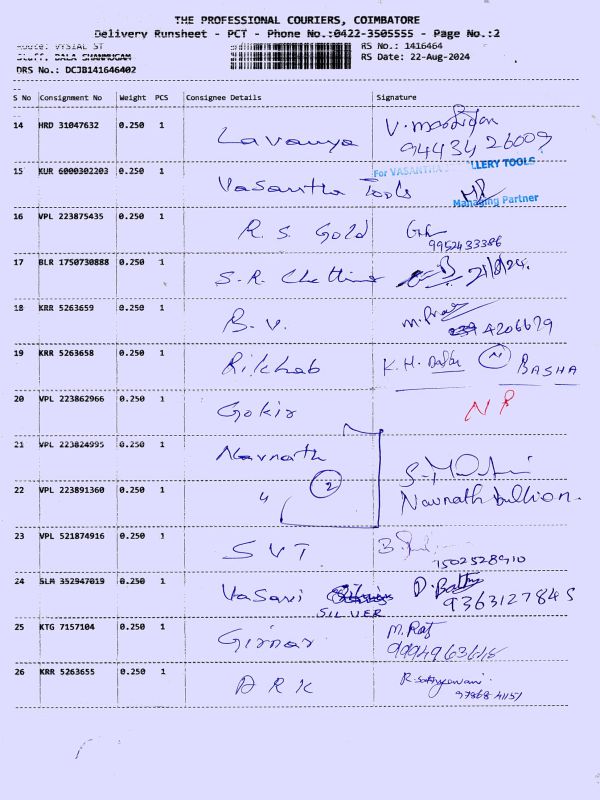 THE PROFESSIONAL COURIERS, COIMBATORE
Delivery Runsheet - PCT - Phone No.:0422-3505555 - Page No.:2
Route: VYSIAL ST RS No.: 1416464
Staff: BALA SHANMUGAM RS Date: 22-Aug-2024
DRS No.: DCJB141646402
S No Consignment No Weight PCS Consignee Details Signature
14 HRD 31047632 0.250 1 Lavanya
15 KUR 6000302203 0.250 1 Vasantha Tools For VASANTHA LLERY TOOLS
Managing Partner
16 VPL 223875435 0.250 1 R. S. Gold
9952433386
17 BLR 1750730888 0.250 1 S.R. Chettinar
18 KRR 5263659 0.250 1 B.V.
4206679
19 KRR 5263658 0.250 1 Rikhab K.H. BASHA
20 VPL 223862966 0.250 1 Gokir NP
21 VPL 223824995 0.250 1 Navnath
22 VPL 223891360 0.250 1 " 2 Navnath bullion.
23 VPL 521874916 0.250 1 SVT
1502528910
24 SLM 352947019 0.250 1 Vasavi SILVER
9363127845
25 KTG 7157104 0.250 1 Girnar M. Raj
26 KRR 5263655 0.250 1 ARK
97868 41151